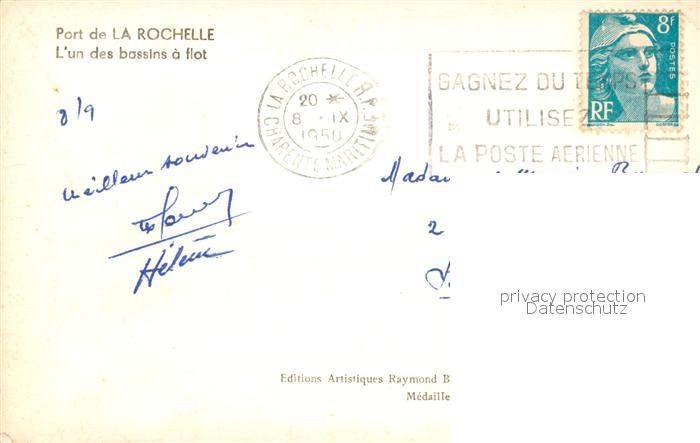 Port de LA ROCHELLE
L'un des bassins à flot
8/9
meilleur souvenir
Hélène
LA ROCHELLE R.P.
20 *
8 - IX
1950
CHARENTE MARITIME
GAGNEZ DU TEMPS
UTILISEZ
LA POSTE AERIENNE
8F
POSTES
RF
2
privacy protection
Datenschutz
Editions Artistiques Raymond B
Médaille